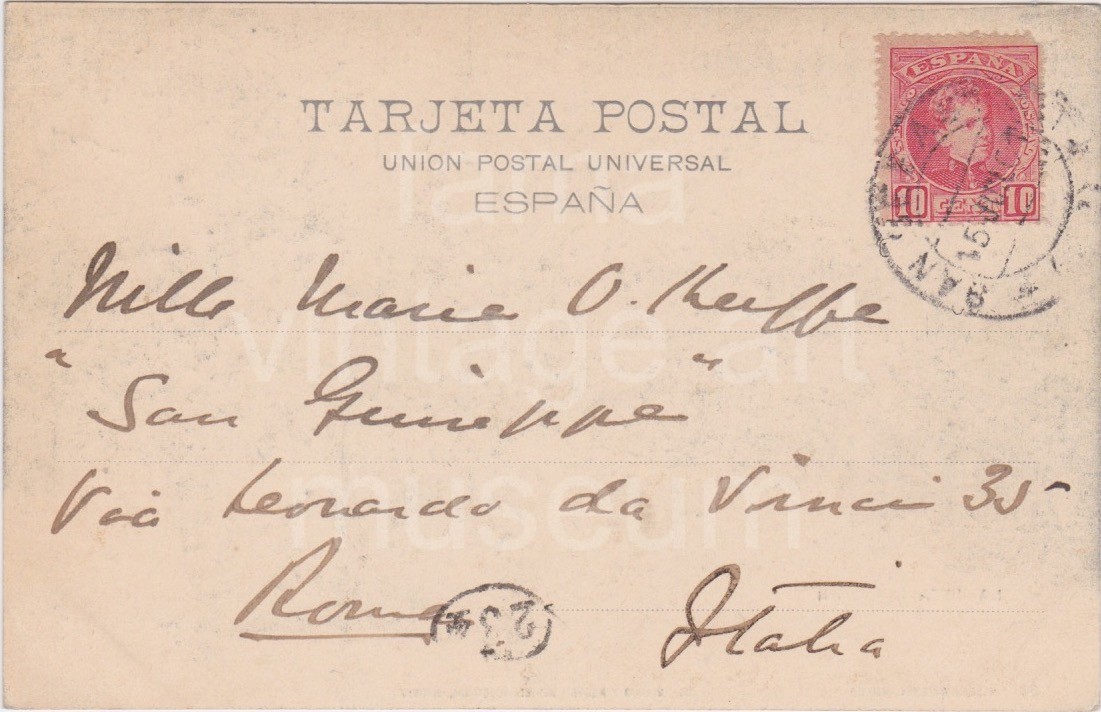 TARJETA POSTAL
UNION POSTAL UNIVERSAL
ESPAÑA
ESPAÑA
10 CENS 10
SAN
15
Mlle Maria O.
"San Giuseppe"
Via Leonardo da Vinci 35
Roma
Italia
234
lanta
vintage art
museum